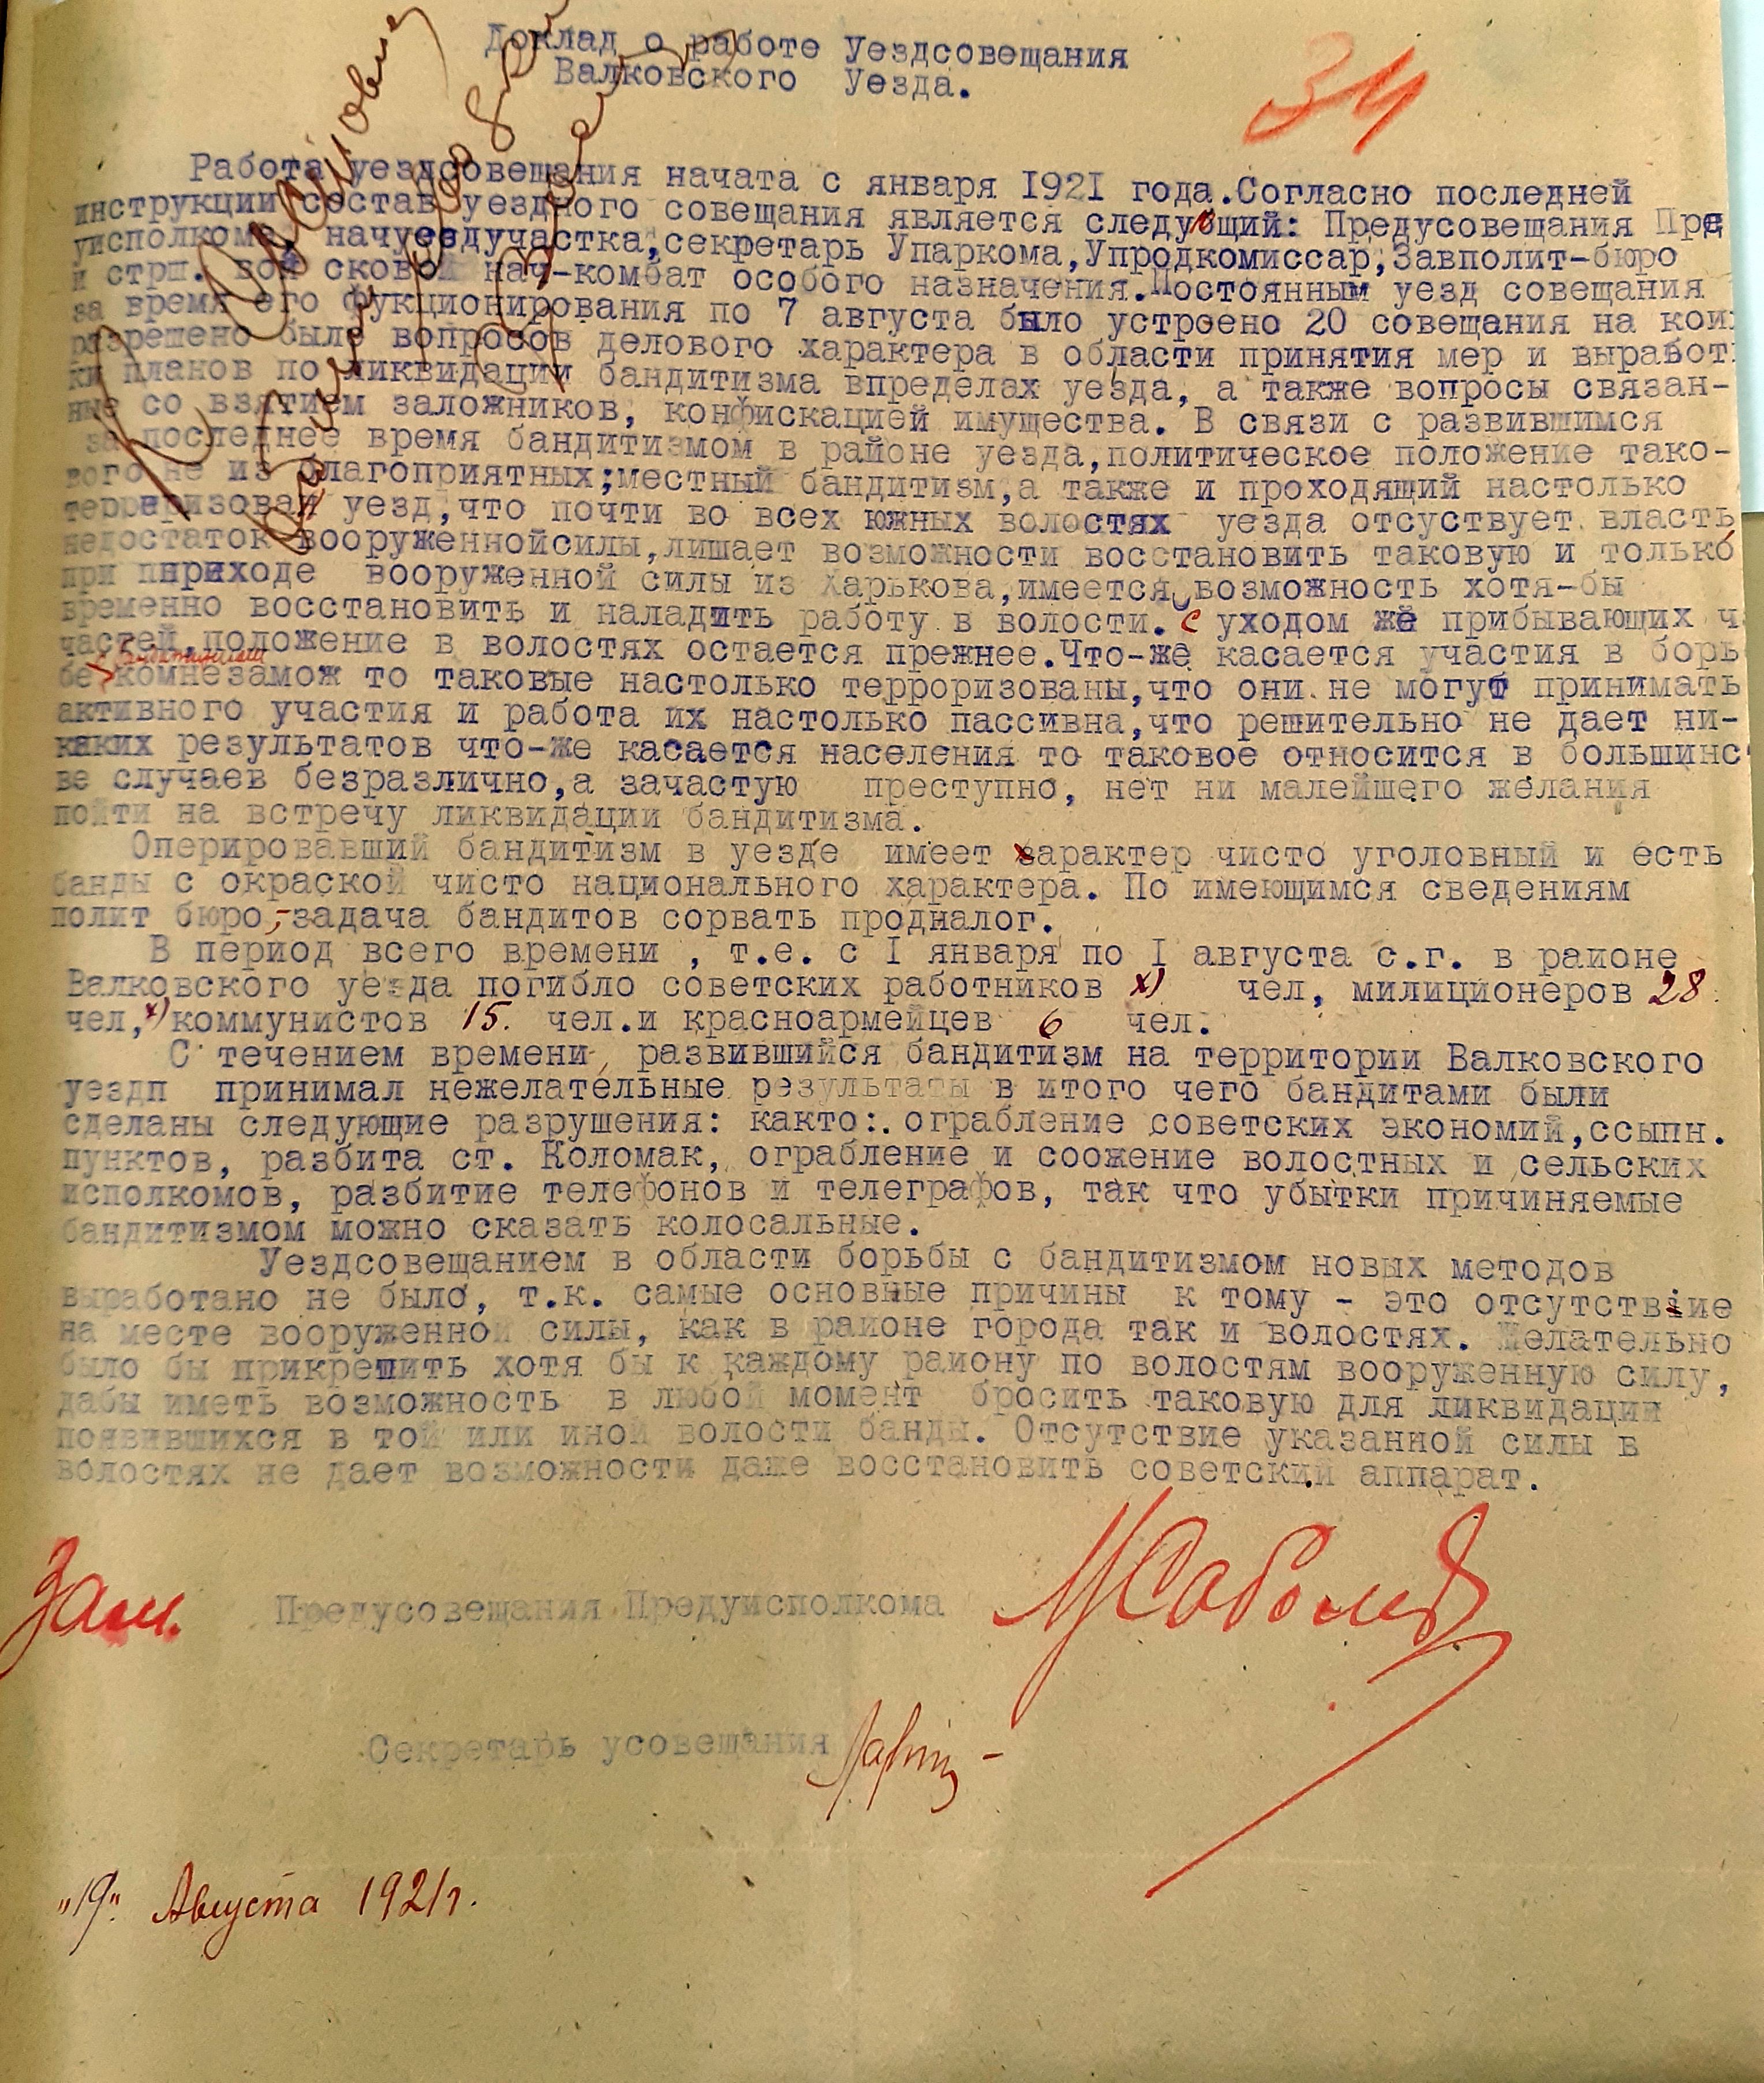 Доклад о работе Уездсовещания
Валковского Уезда.
34
Работа уездсовещания начата с января 1921 года.Согласно последней
инструкции состав уездного совещания является следующий: Предусовещания Пред
уисполкома, начуездучастка,секретарь Упаркома,Упродкомиссар,Завполит-бюро
и нач-комбат особого назначения.Постоянным уезд совещания
за время его фукционирования по 7 августа было устроено 20 совещания на коих
разрешено было вопросов делового характера в области принятия мер и выработ
ки планов по ликвидации бандитизма впределах уезда, а также вопросы связан-
ные со взятием заложников, конфискацией имущества. В связи с развившимся
за последнее время бандитизмом в районе уезда,политическое положение тако-
вого не из благоприятных;местный бандитизм,а также и проходящий настолько
терроризовал уезд,что почти во всех южных волостях уезда отсуствует власть
недостаток вооруженнойсилы,лишает возможности восстановить таковую и только
при приходе вооруженной силы из Харькова,имеется возможность хотя-бы
временно восстановить и наладить работу в волости. с уходом же прибывающих ч
частей,положение в волостях остается прежнее.Что-же касается участия в борь
бе с бандитизмом комнезамож то таковые настолько терроризованы,что они не могут принимать
активного участия и работа их настолько пассивна,что решительно не дает ни-
каких результатов что-же касается населения то таковое относится в большинст
ве случаев безразлично,а зачастую преступно, нет ни малейшего желания
пойти на встречу ликвидации бандитизма.
Оперировавший бандитизм в уезде имеет характер чисто уголовный и есть
банды с окраской чисто национального характера. По имеющимся сведениям
полит бюро,-задача бандитов сорвать продналог.
В период всего времени , т.е. с I января по I августа с.г. в районе
Валковского уезда погибло советских работников х) чел, милиционеров 28
чел,х) коммунистов 15. чел.и красноармейцев 6 чел.
С течением времени, развившийся бандитизм на территории Валковского
уездп принимал нежелательные результаты в итого чего бандитами были
сделаны следующие разрушения: както:.ограбление советских экономий,ссыпн.
пунктов, разбита ст. Коломак, ограбление и соожение волостных и сельских
исполкомов, разбитие телефонов и телеграфов, так что убытки причиняемые
бандитизмом можно сказать колосальные.
Уездсовещанием в области борьбы с бандитизмом новых методов
выработано не было, т.к. самые основные причины к тому - это отсутствие
на месте вооруженной силы, как в районе города так и волостях. Желательно
было бы прикрепить хотя бы к каждому району по волостям вооруженную силу,
дабы иметь возможность в любой момент бросить таковую для ликвидации
появившихся в той или иной волости банды. Отсутствие указанной силы в
волостях не дает возможности даже восстановить советский аппарат.
Зам. Предусовещания Предуисполкома МСоболев
Секретарь усовещания
"19" Августа 1921г.